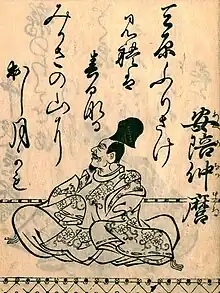 安陪仲麿
天原ふりさけ
見禮は
春日なる
みかさの山に
出し月かも